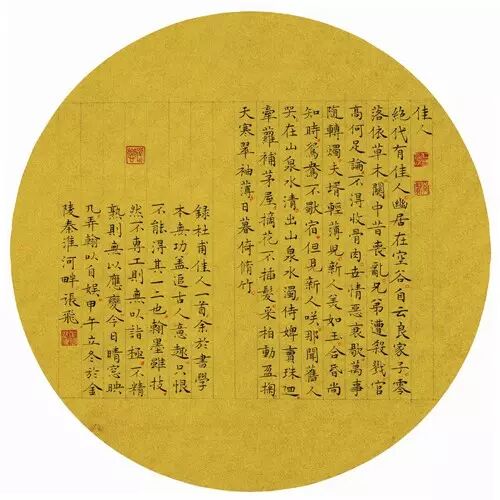 佳人
絕代有佳人幽居在空谷自云良家子零
落依草木關中昔喪亂兄弟遭殺戮官
高何足論不得收骨肉世情惡衰歇萬事
隨轉燭夫壻輕薄兒新人美如玉合昏尚
知時鴛鴦不獨宿但見新人咲那聞舊人
哭在山泉水清出山泉水濁侍婢賣珠迴
牽蘿補茅屋摘花不插髮采柏動盈掬
天寒翠袖薄日暮倚脩竹
錄杜甫佳人一首余於書學
本無功盖追古人意趣只恨
不能得其一二也翰墨雖技
然不專工則無以詣極不精
熟則無以應變今日晴窓映
几弄翰以自娛甲午立冬於金
陵秦淮河畔張飛